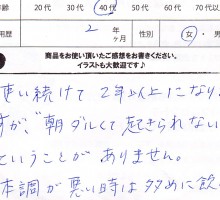 年齢 20代 30代 40代 50代 60代 70代以
用歴 2 年 ヶ月 性別 女・男
商品をお使い頂いたご感想をお書きください。
イラストも大歓迎です♪
使い続けて2年以上になり
すが、“朝ダルくて起きられない
ということがありません。
体調が悪い時は多めに飲